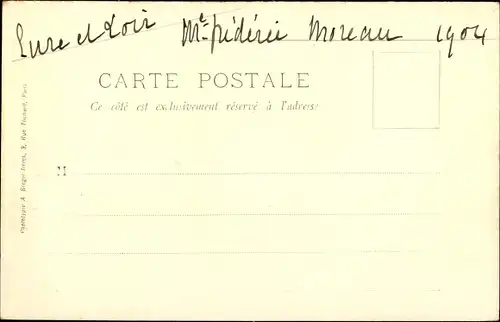 Eure et Loir Me frédéric Moreau 1904
CARTE POSTALE
Ce côté est exclusivement réservé à l'adresse
M
Phototypie A. Bergeret